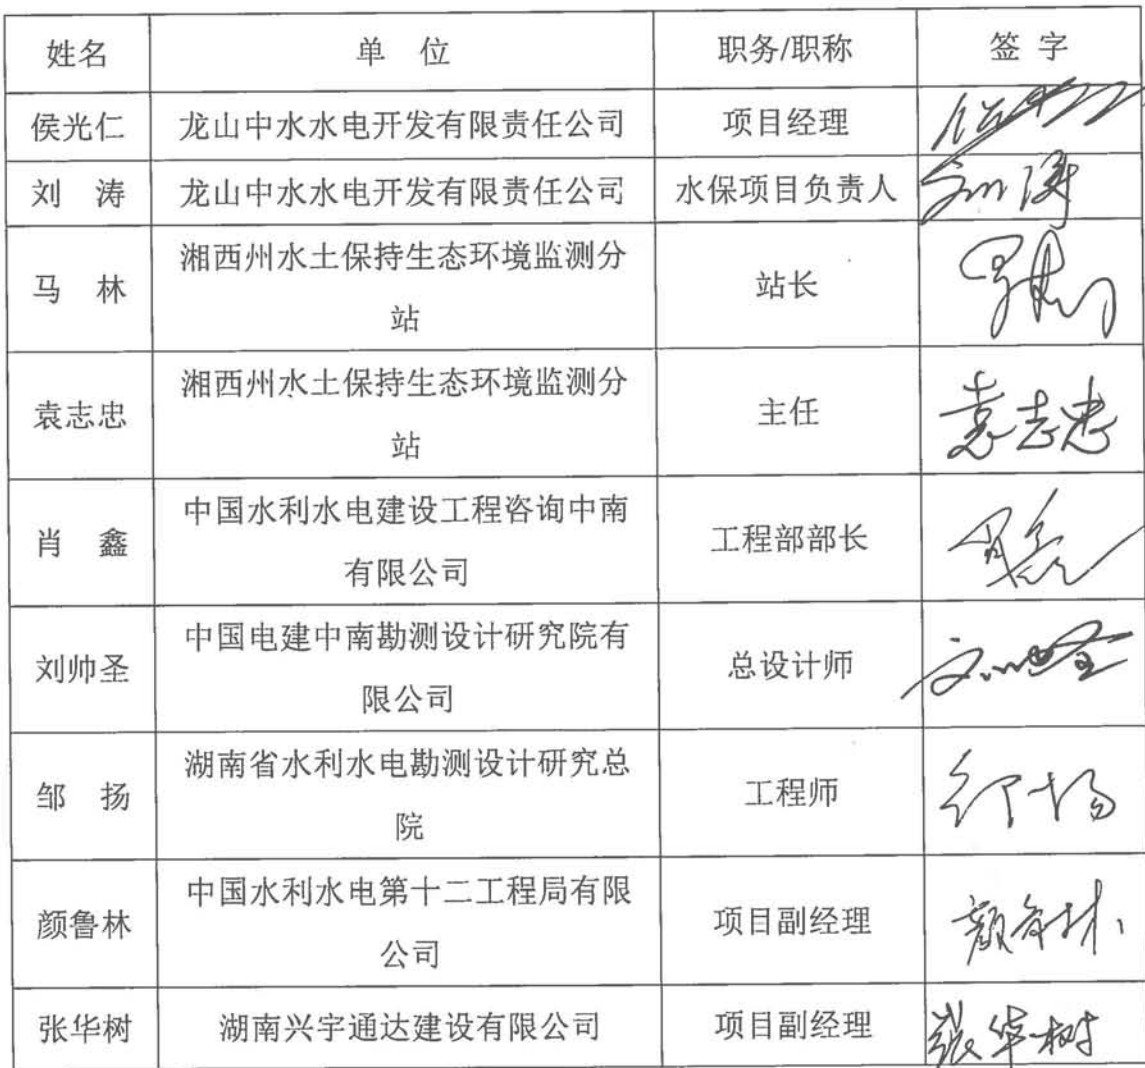 姓名 单 位 职务/职称 签 字
侯光仁 龙山中水水电开发有限责任公司 项目经理
刘 涛 龙山中水水电开发有限责任公司 水保项目负责人 刘涛
马 林 湘西州水土保持生态环境监测分站 站长 马林
袁志忠 湘西州水土保持生态环境监测分站 主任 袁志忠
肖 鑫 中国水利水电建设工程咨询中南有限公司 工程部部长 肖鑫
刘帅圣 中国电建中南勘测设计研究院有限公司 总设计师 刘帅圣
邹 扬 湖南省水利水电勘测设计研究总院 工程师 邹扬
颜鲁林 中国水利水电第十二工程局有限公司 项目副经理 颜鲁林
张华树 湖南兴宇通达建设有限公司 项目副经理 张华树